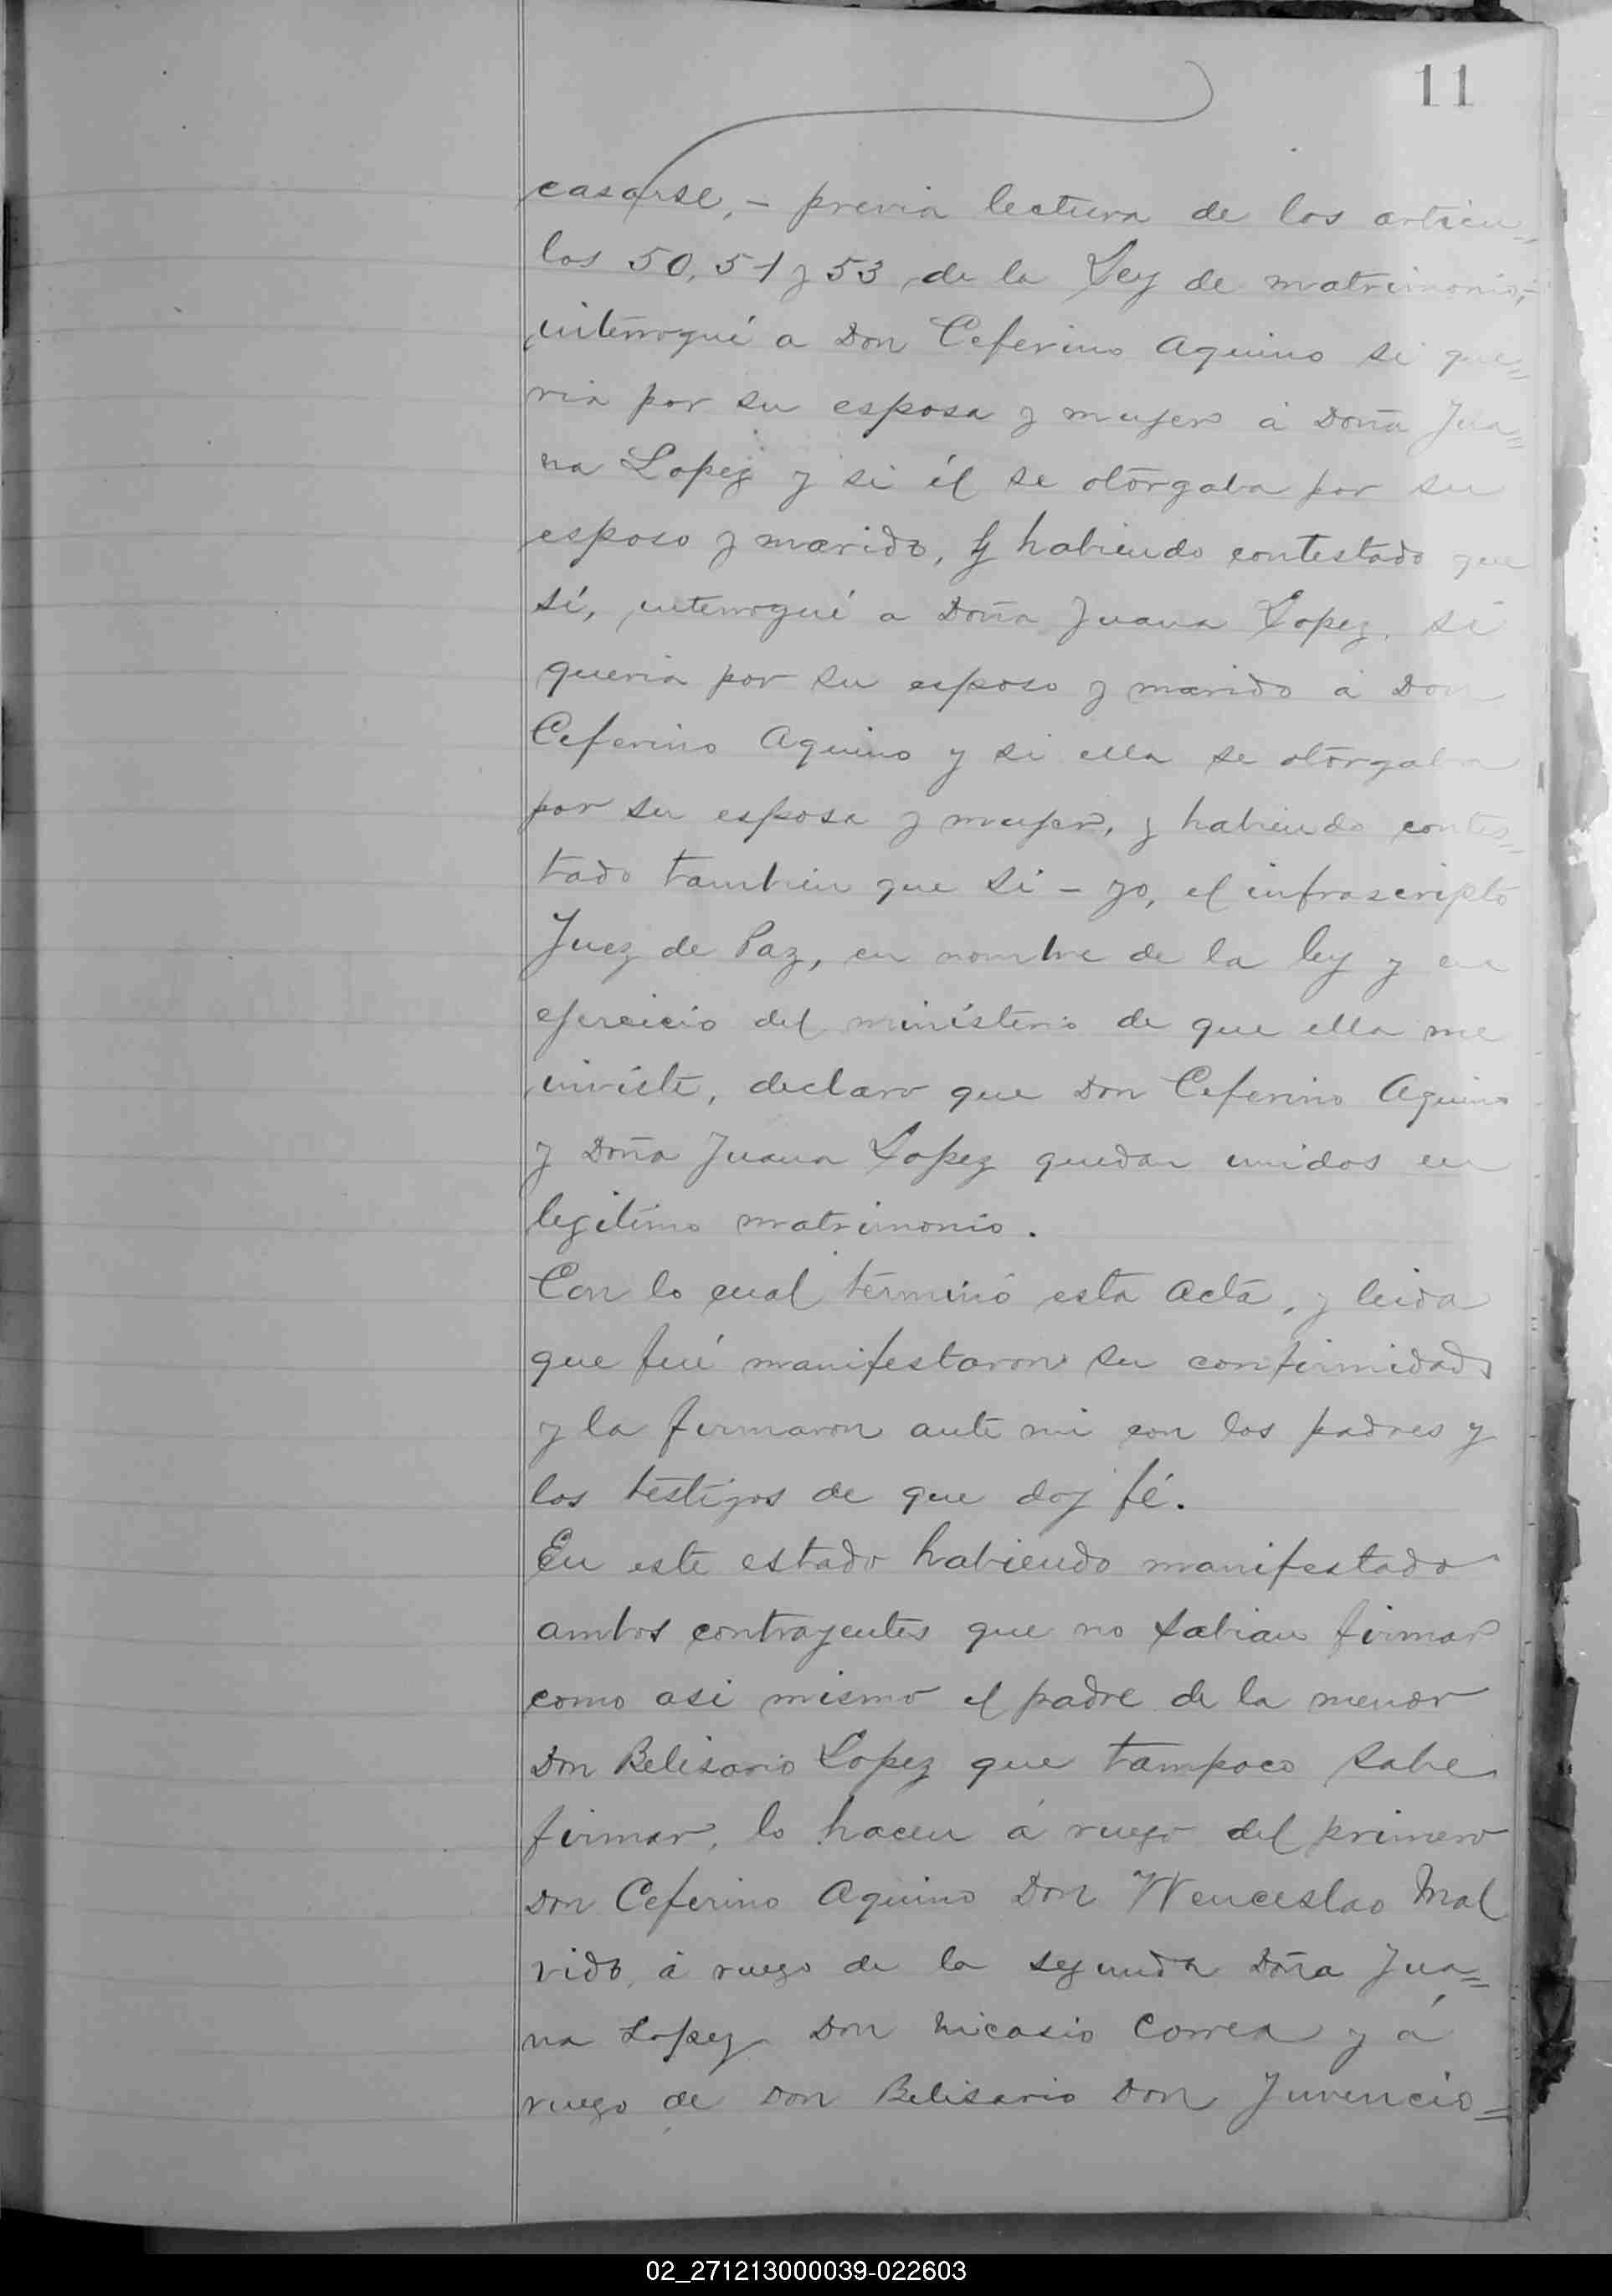 11
casarse, - previa lectura de los articu=
los 50, 51 y 53 de la Ley de matrimonio,-
interrogué a Don Ceferino Aquino si que=
ria por su esposa y mujer á Doña Jua=
na Lopez y si él se otorgaba por su
esposo y marido, y habiendo contestado que
sí, interrogué a Doña Juana Lopez, si
queria por su esposo y marido á Don
Ceferino Aquino y si ella se otorgaba
por su esposa y mujer, y habiendo contes=
tado tambien que si - yo, el infrascripto
Juez de Paz, en nombre de la ley y en
ejercicio del ministerio de que ella me
inviste, declaro que Don Ceferino Aquino
y Doña Juana Lopez quedan unidos en
legitimo matrimonio.
Con lo cual terminó esta acta, y leida
que fué manifestaron su confirmidad
y la firmaron ante mi con los padres y
los testigos de que doy fé.
En este estado habiendo manifestado
ambos contrayentes que no sabian firmar
como asi mismo el padre de la menor
Don Belisario Lopez que tampoco sabe
firmar, lo hacen á ruego del primero
Don Ceferino Aquino Don Wenceslao Mal
vido, á ruego de la segunda Doña Jua=
na Lopez Don Nicasio Correa y á
ruego de Don Belisario Don Juvencio=
02_271213000039-022603